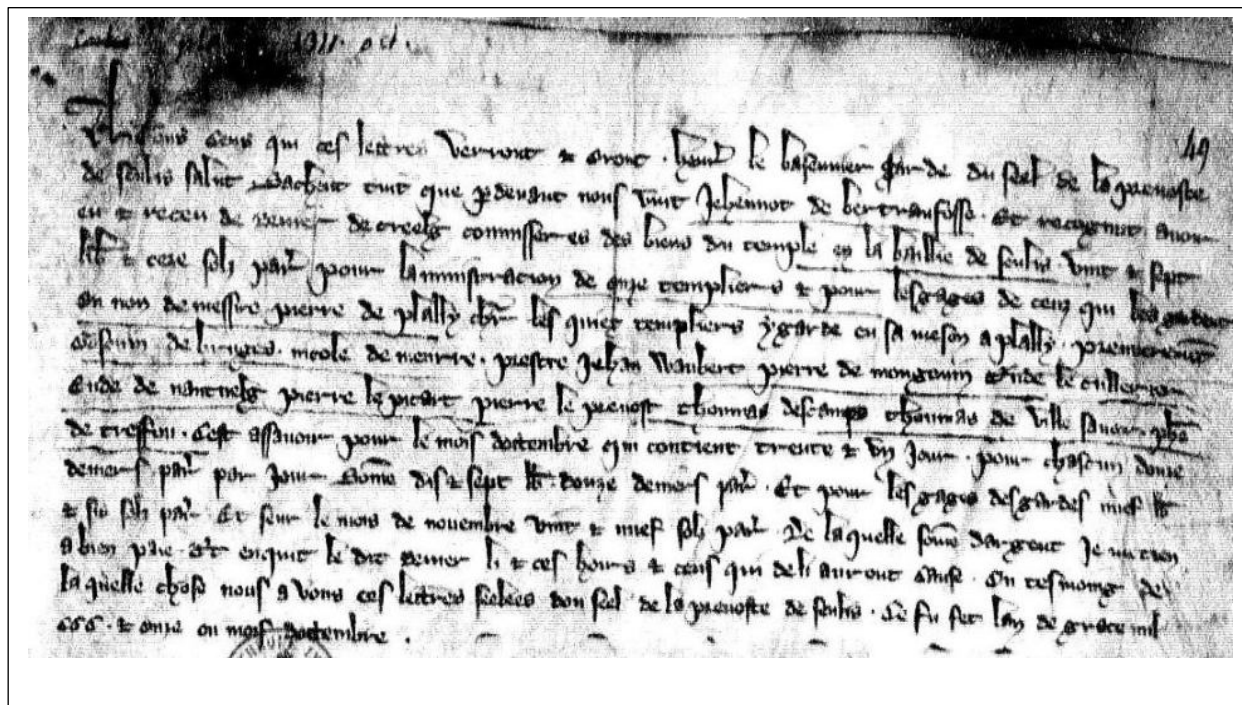 1311. oct.
49
A touz ceus qui ces lettres verront & orront . Henri le basennier garde du seel de la prevoste
de senlis salut Sachent tuit que par devant nous vint Jehennot de bertranfosse . Et recognut avoir
eu & receu de Renier de creelg commisseres des biens du temple en la baillie de senlis . vint & sept
lib & seze solz par pour laministracion de onze templiers & pour les gages de ceuz qui les gardent
ou non de messire pierre de plally chr les quiex templiers y garde en sa meson a plally .
de bruges . nicole de . prestre Jehan Waubert pierre de le cuillerier
Eude de nantuelg pierre le picart pierre le prevost thoumas descamps thoumas de ville savoir
de treffon . Cest assavoir pour le mois doctembre qui contient trente & un jour . pour chascun douze
deniers par par jour Some dis & sept lb douze deniers par . Et pour les gages des gardes nuef lb
& sis solz par . Et seur le mois de novembre vint & nuef solz par . De laquelle some dargent je me tien
a bien paie . Et en quit le dit Renier li & ces hoirs & ceus qui de li auront cause . En tesmoing de
laquelle chose nous avons ces lettres seelees dou seel de la prevoste de senlis . Ce fu fet lan de grace mil
CCC . & onze ou mois doctembre .